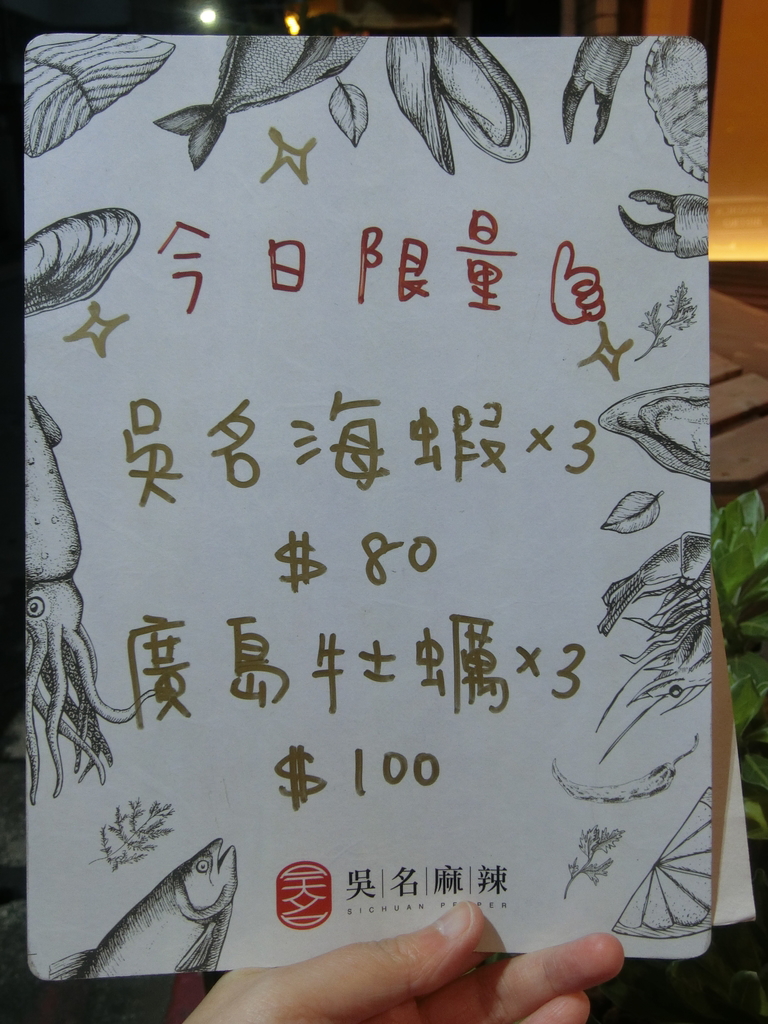 今日限量
吳名海蝦×3
$80
廣島牡蠣×3
$100
吳名麻辣
SICHUAN PEPPER